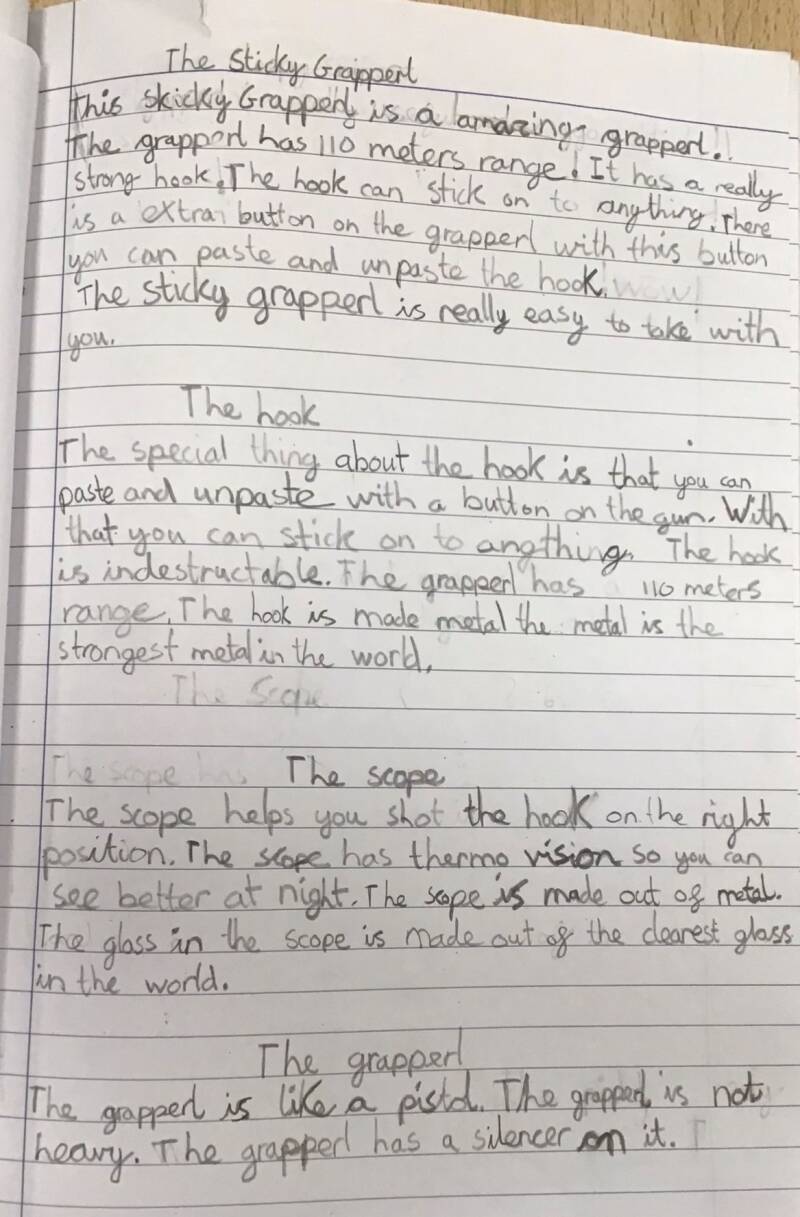 The Sticky Grapperl
This Skicky Grapperl is a amazing grapperl.
The grapperl has 110 meters range! It has a really
strong hook. The hook can stick on to anything. There
is a extra button on the grapperl with this button
you can paste and unpaste the hook. wow!
The sticky grapperl is really easy to take with
you.
The hook
The special thing about the hook is that you can
paste and unpaste with a button on the gun. With
that you can stick on to angthing. The hook
is indestructable. The grapperl has 110 meters
range. The hook is made metal the metal is the
strongest metal in the world.
The Scope
The scope has The scope
The scope helps you shot the hook on the right
position. The scope has thermo vision so you can
see better at night. The scope is made out of metal.
The glass in the scope is made out of the clearest glass
in the world.
The grapperl
The grapperl is like a pistol. The grapperl is not
heavy. The grapperl has a silencer on it.